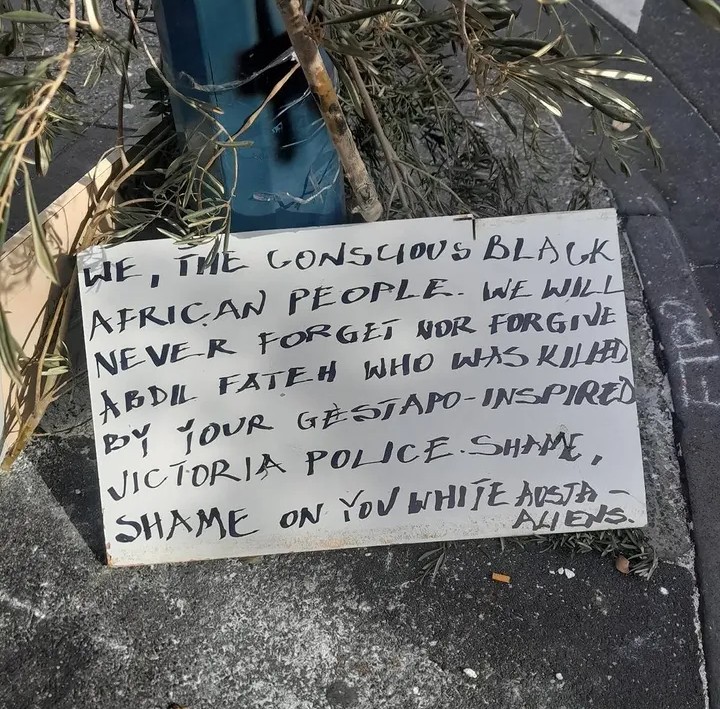 WE, THE CONSCIOUS BLACK
AFRICAN PEOPLE. WE WILL
NEVER FORGET NOR FORGIVE
ABDIL FATEH WHO WAS KILLED
BY YOUR GESTAPO-INSPIRED
VICTORIA POLICE. SHAME,
SHAME ON YOU WHITE AOSTA-
ALIENS.